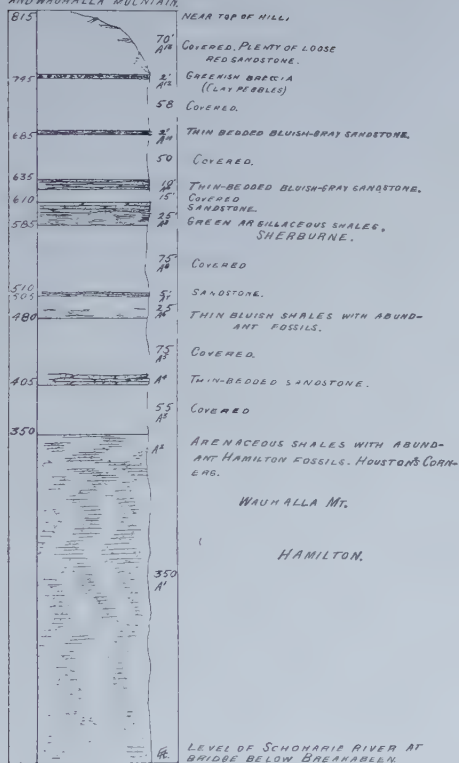 AND WAUHALLA MOUNTAIN.
815 NEAR TOP OF HILL.
70' COVERED. PLENTY OF LOOSE
RED SANDSTONE.
745 2' GREENISH BRECCIA
(CLAY PEBBLES)
58 COVERED.
685 2' THIN BEDDED BLUISH-GRAY SANDSTONE.
50 COVERED.
635 10' THIN-BEDDED BLUISH-GRAY SANDSTONE.
15' COVERED
610 SANDSTONE.
25' GREEN ARGILLACEOUS SHALES.
585 SHERBURNE.
75' COVERED
510
505 5' SANDSTONE.
25' THIN BLUISH SHALES WITH ABUND-
480 ANT FOSSILS.
75 COVERED.
405 A4 THIN-BEDDED SANDSTONE.
55 COVERED
350
A2 ARENACEOUS SHALES WITH ABUND-
ANT HAMILTON FOSSILS. HOUSTON'S CORN-
ERS.
WAUHALLA MT.
HAMILTON.
350
A1
LEVEL OF SCHOHARIE RIVER AT
BRIDGE BELOW BREAKABEEN.